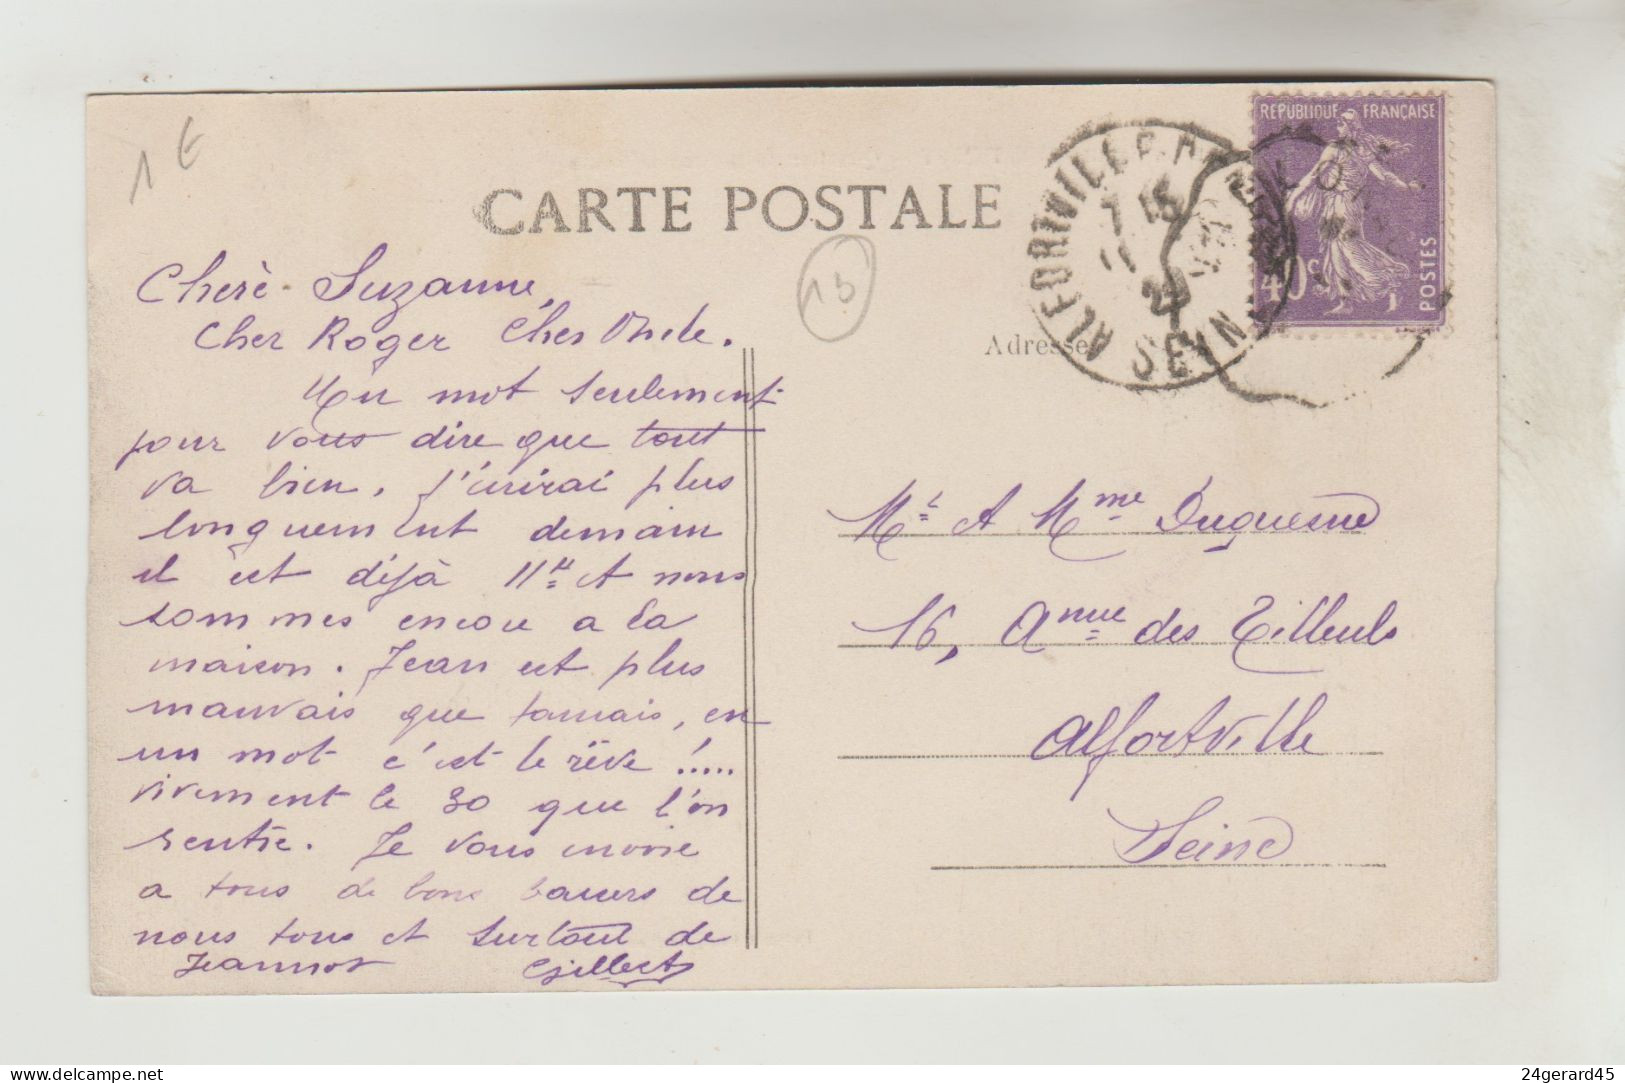 1 €
CARTE POSTALE
13
RÉPUBLIQUE FRANÇAISE
40c
POSTES
ALFORTVILLE
7 15
SEIN
Adresse
Cherè Suzanne,
Cher Roger Cher
Un mot seulement
pour vous dire que tout
va bien. J'écrirai plus
longuement demain
il est déjà 11H et nous
sommes encore a la
maison. Jean est plus
mauvais que jamais, en
un mot c'est le rêve !.....
vivement le 30 que l'on
rentre. Je vous envoie
a tous de bons baisers de
nous tous et surtout de
Jeannot Gilberte
Mr et Mme Duquesne
16, Anue des Tilleuls
Alfortville
Seine
24gerard45